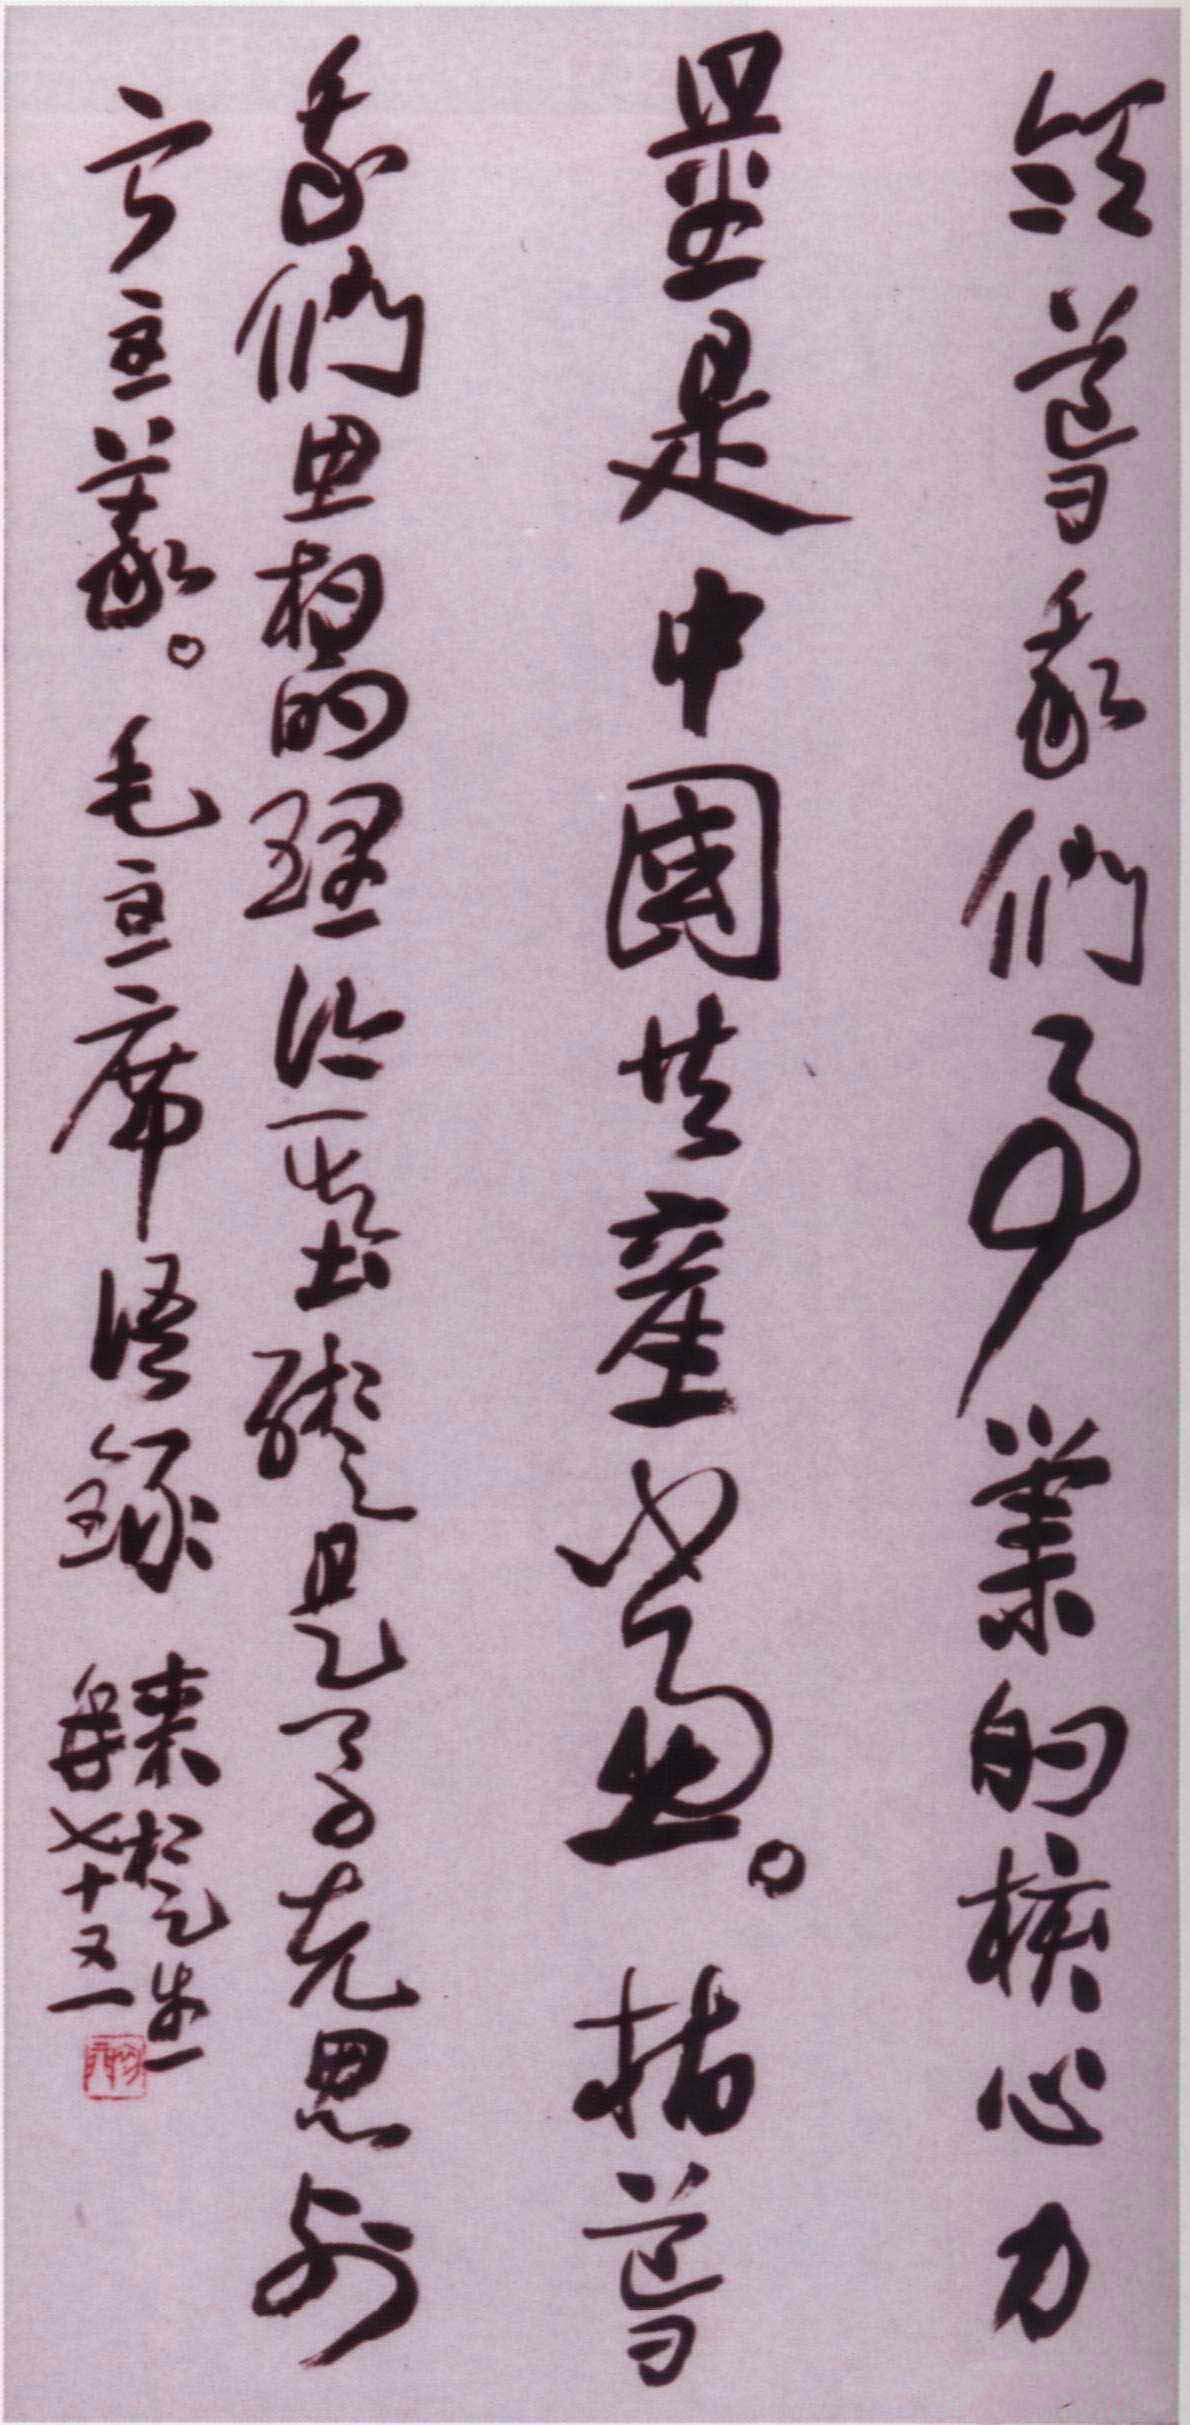 領導我們事業的核心力
量是中國共產黨。指導
我們思想的理論基礎是馬克思列
宁主義。毛主席語錄
楚生
七十又一